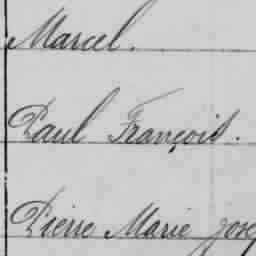 Marcel.
Paul François.
Pierre Marie Jose